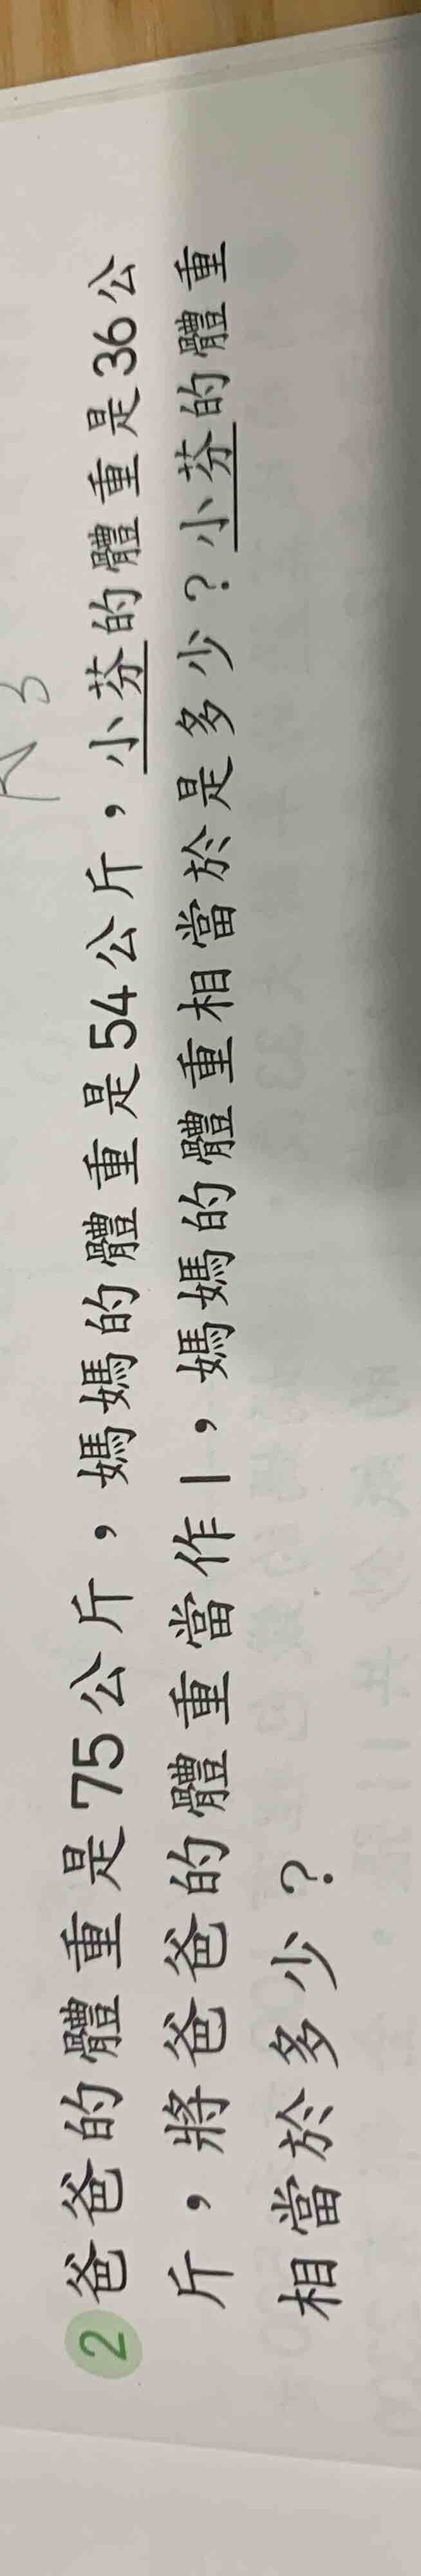 2 爸爸的體重是75公斤，媽媽的體重是54公斤，小芬的體重是36公
斤，將爸爸的體重當作1，媽媽的體重相當於是多少？小芬的體重
相當於多少？